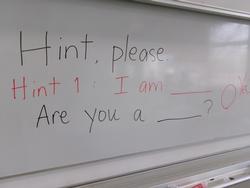 Hint, please.
Hint 1 : I am ____
Are you a ____ ?